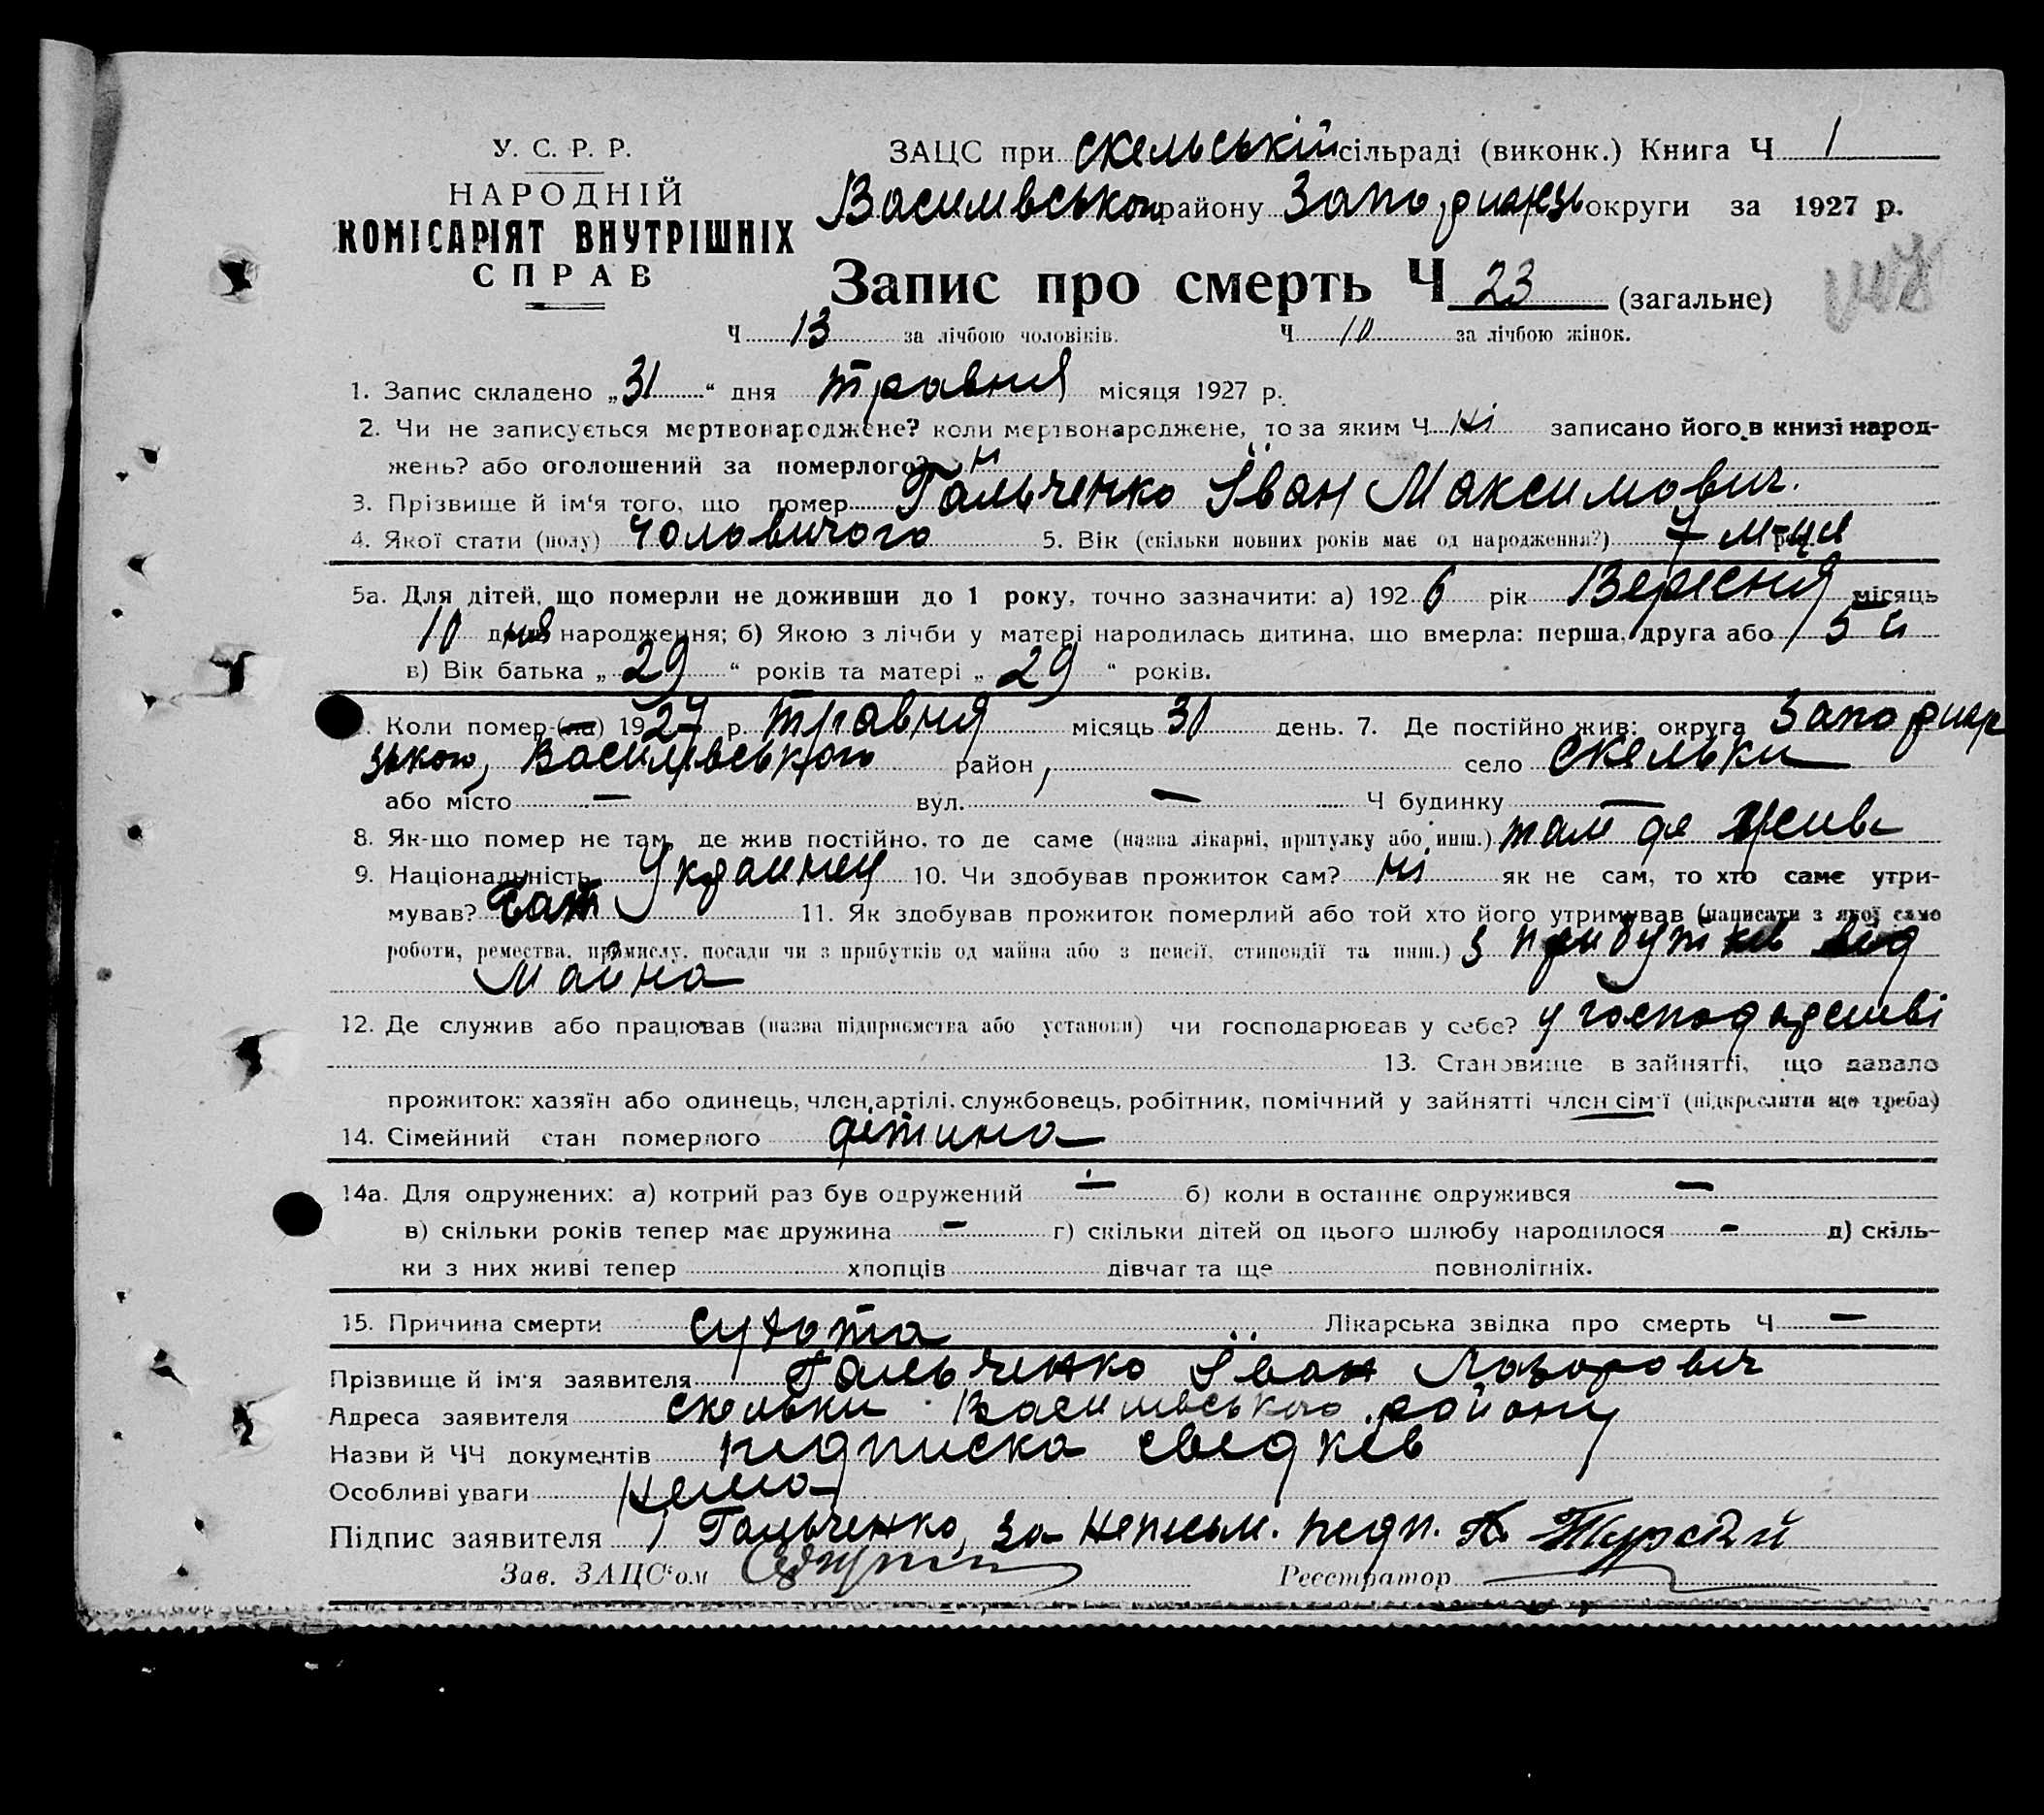 У. С. Р. Р.
НАРОДНІЙ
КОМІСАРІЯТ ВНУТРІШНІХ
СПРАВ
ЗАЦС при Скельській сільраді (виконк.) Книга Ч 1
Василівського району Запоріжськ округи за 1927 р.
Запис про смерть Ч 23 (загальне)
Ч 13 за лічбою чоловіків. Ч 10 за лічбою жінок.
1. Запис складено „31“ дня травня місяця 1927 р.
2. Чи не записується мертвонароджене? коли мертвонароджене, то за яким Ч ні записано його в книзі народ-
жень? або оголошений за померлого?
3. Прізвище й ім‘я того, що помер Гальченко Іван Максимович.
4. Якої стати (полу) чоловичого 5. Вік (скільки повних років має од народження?) 7 м-ця
5а. Для дітей, що померли не доживши до 1 року, точно зазначити: а) 1926 рік Вересня місяць
10 дня народження; б) Якою з лічби у матері народилась дитина, що вмерла: перша, друга або 5й
в) Вік батька „29“ років та матері „29“ років.
Коли помер (ла) 1927 р. травня місяць 31 день. 7. Де постійно жив: округа
Василівського район, село Скельки
або місто — вул. — Ч будинку —
8. Як-що помер не там, де жив постійно, то де саме (назва лікарні, притулку або инш.) там де жив
9. Національність Украинец 10. Чи здобував прожиток сам? ні як не сам, то хто саме утри-
мував? Бат 11. Як здобував прожиток померлий або той хто його утримував (написати з якої само
роботи, ремества, промислу, посади чи з прибутків од майна або з пенсії, стипендії та инш.) з прибутків від
майна
12. Де служив або працював (назва підприємства або установи) чи господарював у себе? у господарстві
13. Становище в зайнятті, що давало
прожиток: хазяїн або одинець, член артілі, службовець, робітник, помічний у зайнятті член сім‘ї (підкреслити що треба)
14. Сімейний стан померлого дітина
14а. Для одружених: а) котрий раз був одружений — б) коли в останнє одружився —
в) скільки років тепер має дружина — г) скільки дітей од цього шлюбу народилося - д) скіль-
ки з них живі тепер хлопців дівчат та ще повнолітніх.
15. Причина смерти сухота Лікарська звідка про смерть Ч —
Прізвище й ім‘я заявителя Гальченко Іван Лазорович
Адреса заявителя Скельки Василівського району
Назви й ЧЧ документів підписка свідків
Особливі уваги Нема
Підпис заявителя Гальченко, за неписьм. підп.
Зав. ЗАЦС‘ом Реєстратор